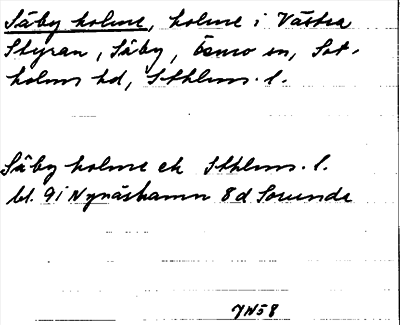 Säby holme, holme i Västra
Styran, Säby, Ösmo sn, Sot-
holms hd, Sthlms. l.
Säby holme ek Sthlms. l.
bl. 9i Nynäshamn 8d Sorunda
JN58